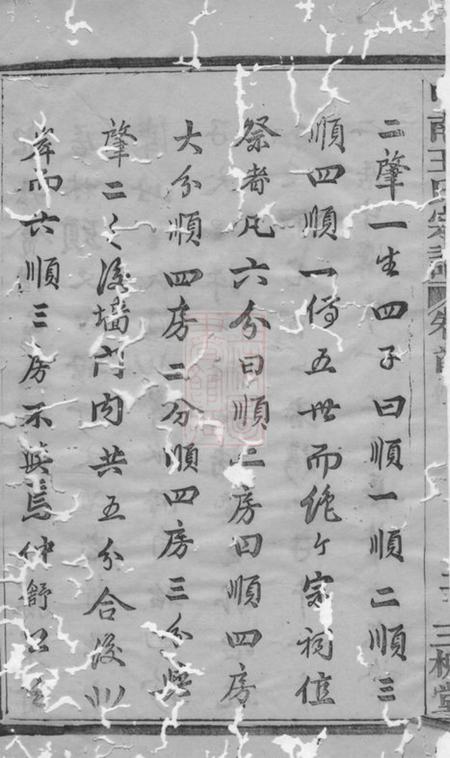 二肇一生四子曰順一順二順三
順四順一傳五世而絶今宗祠值
祭者凡六分曰順二房曰順四房
大分順四房二分順四房三分與
肇二之後墻門内共五分合後川
岸而六順三房不與焉仲舒公
王氏宗譜 卷首
三槐堂